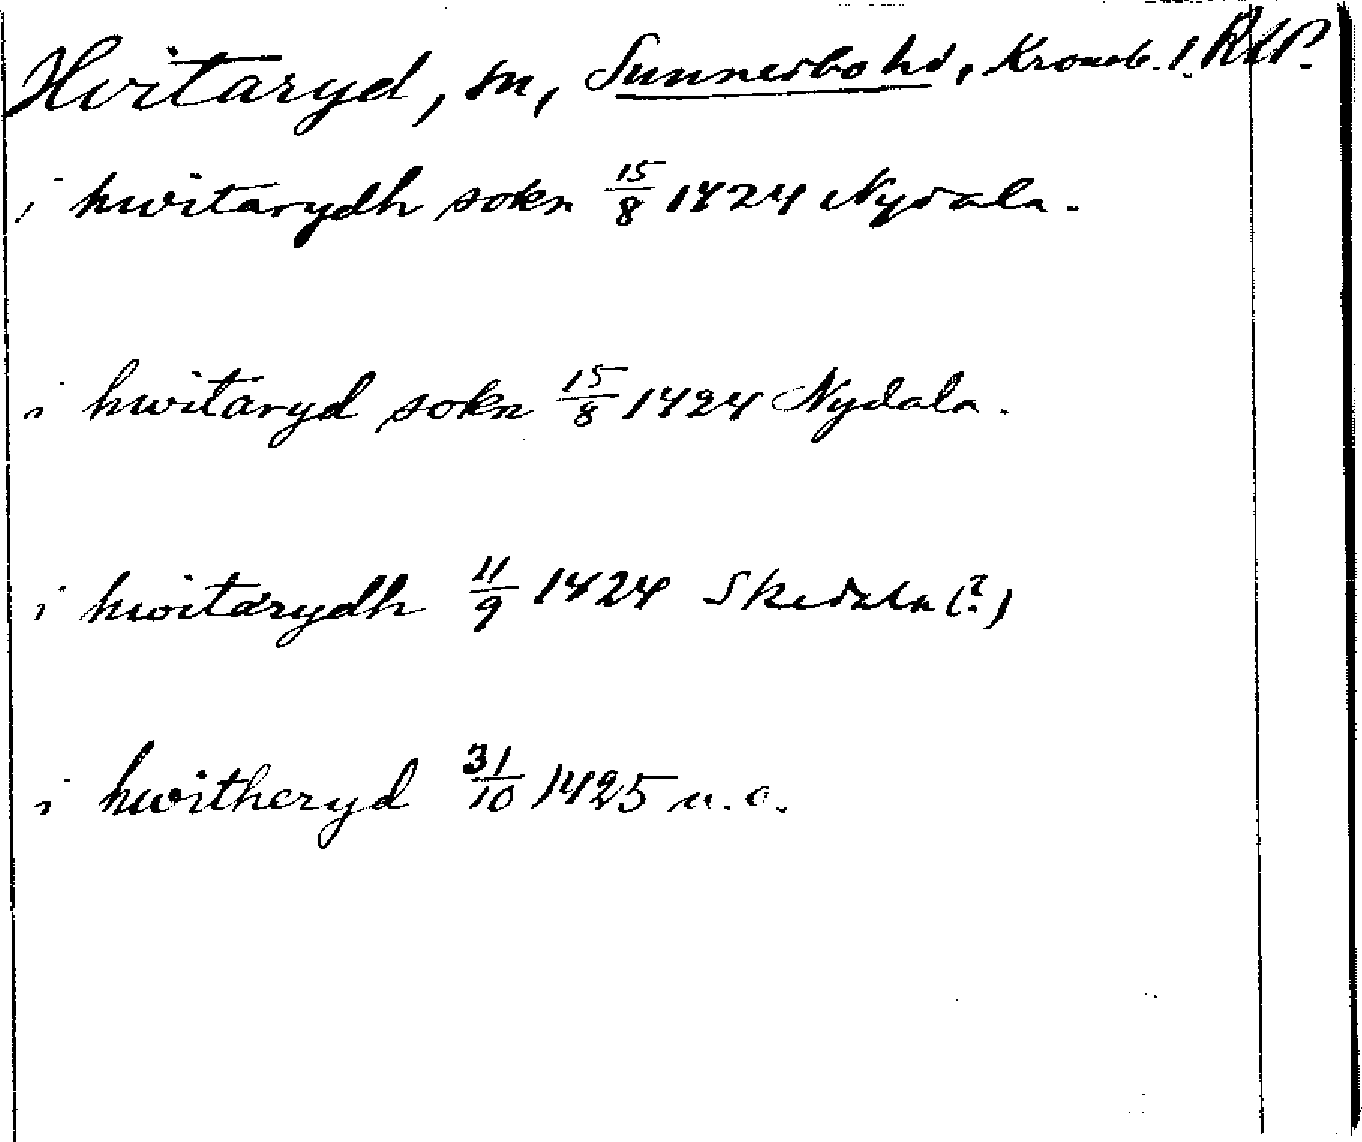 Hvitaryd, sn, Sunnerbo hd, Kronob. l. RAP.
i hwitarydh sokn 15/8 1424 Nydala.
i hwitaryd sokn 15/8 1424 Nydala.
i hwitarydh 11/9 1424 Skedala (?)
i hwitheryd 31/10 1425 u.o.